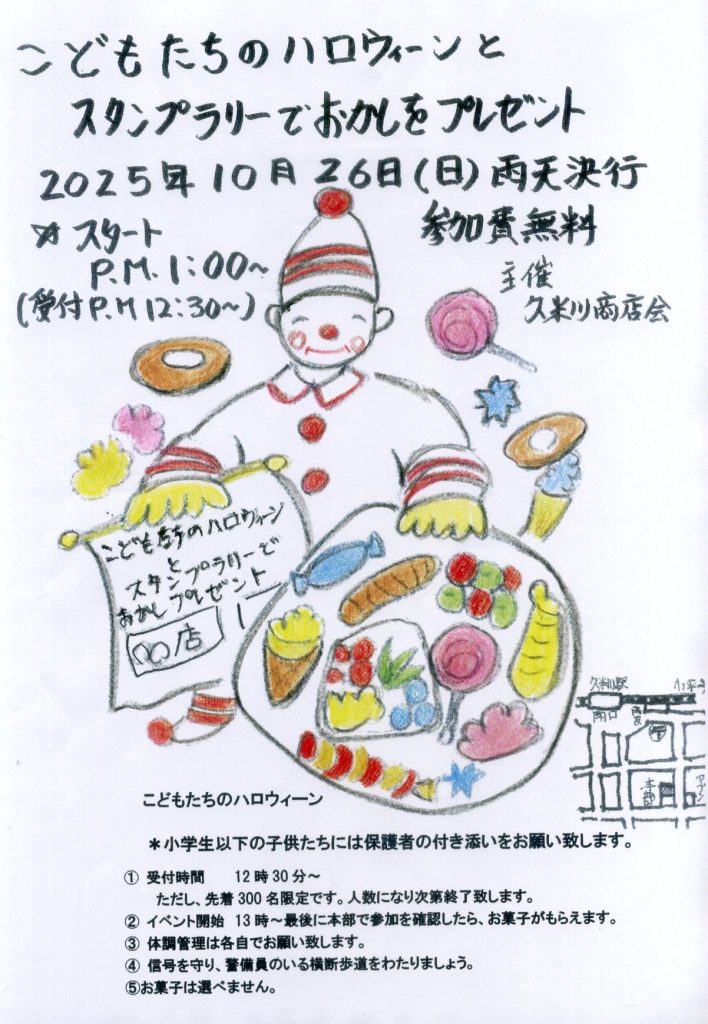 こどもたちのハロウィーンと
スタンプラリーでおかしをプレゼント
2025年10月26日(日)雨天決行
参加費無料
☆スタート
P.M.1:00~
(受付P.M12:30~)
主催
久米川商店会
こどもたちのハロウィーン
と
スタンプラリーで
おかしプレゼント
〇〇店
久米川駅
南口
本部
こどもたちのハロウィーン
*小学生以下の子供たちには保護者の付き添いをお願い致します。
① 受付時間 12時30分~
ただし、先着300名限定です。人数になり次第終了致します。
② イベント開始 13時~最後に本部で参加を確認したら、お菓子がもらえます。
③ 体調管理は各自でお願い致します。
④ 信号を守り、警備員のいる横断歩道をわたりましょう。
⑤お菓子は選べません。